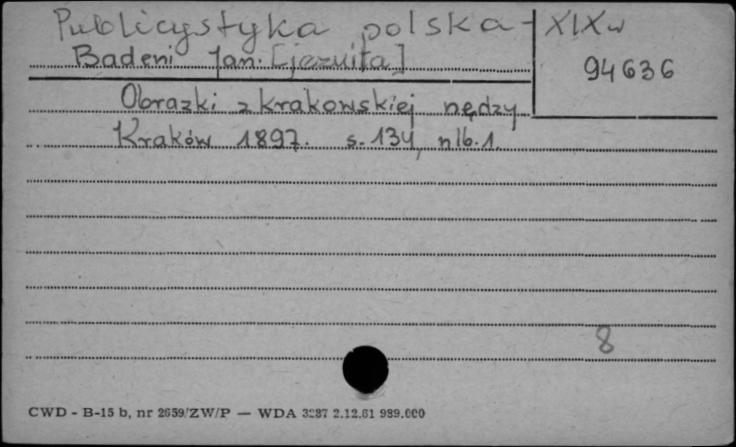 Publicystyka polska - XIX w
Badeni Jan. [jezuita]
94636
Obrazki z krakowskiej nędzy
Kraków 1897. s. 134, nlb. 1.
8
CWD - B-15 b, nr 2659/ZW/P — WDA 3287 2.12.61 989.000